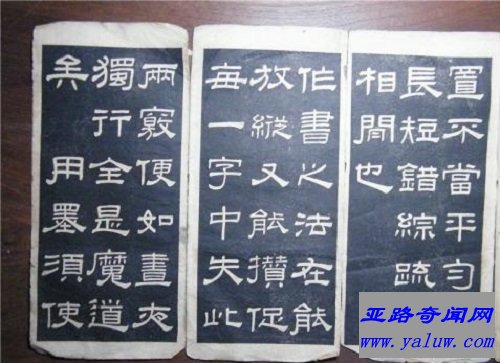 置不當平勻
長短錯綜疏
相間也
作書之法在能
放縱又能攢促
每一字中失此
兩竅便如晝夜
獨行全是魔道
矣 用墨須使
亚路奇闻网
www.yaluw.com